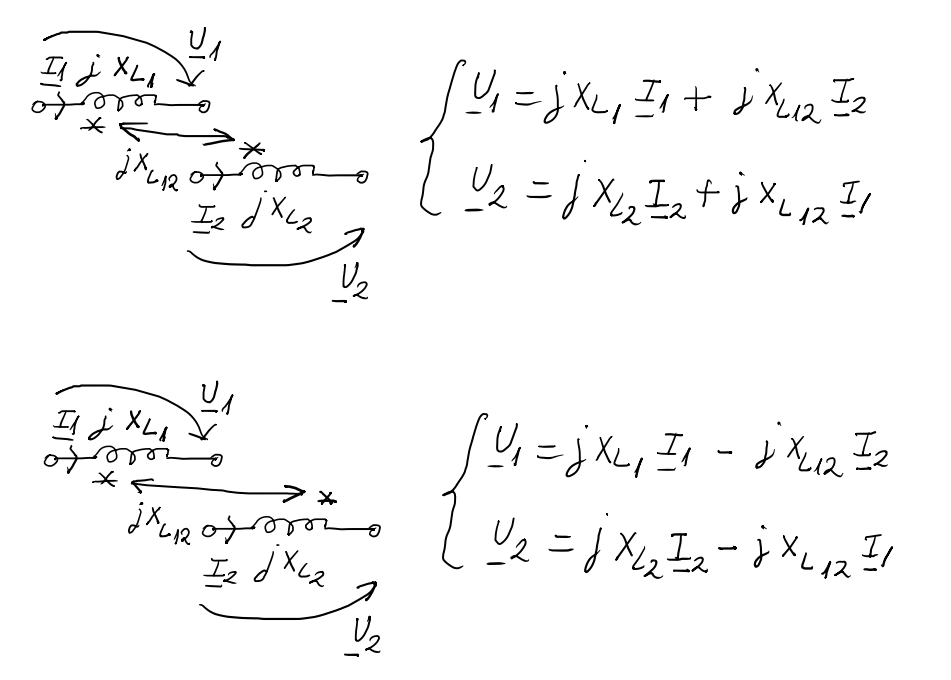 U̲1
I̲1 j X_L1
*
*
j X_L12
I̲2 j X_L2
U̲2
{ U̲1 = j X_L1 I̲1 + j X_L12 I̲2
U̲2 = j X_L2 I̲2 + j X_L12 I̲1
U̲1
I̲1 j X_L1
*
*
j X_L12
I̲2 j X_L2
U̲2
{ U̲1 = j X_L1 I̲1 - j X_L12 I̲2
U̲2 = j X_L2 I̲2 - j X_L12 I̲1